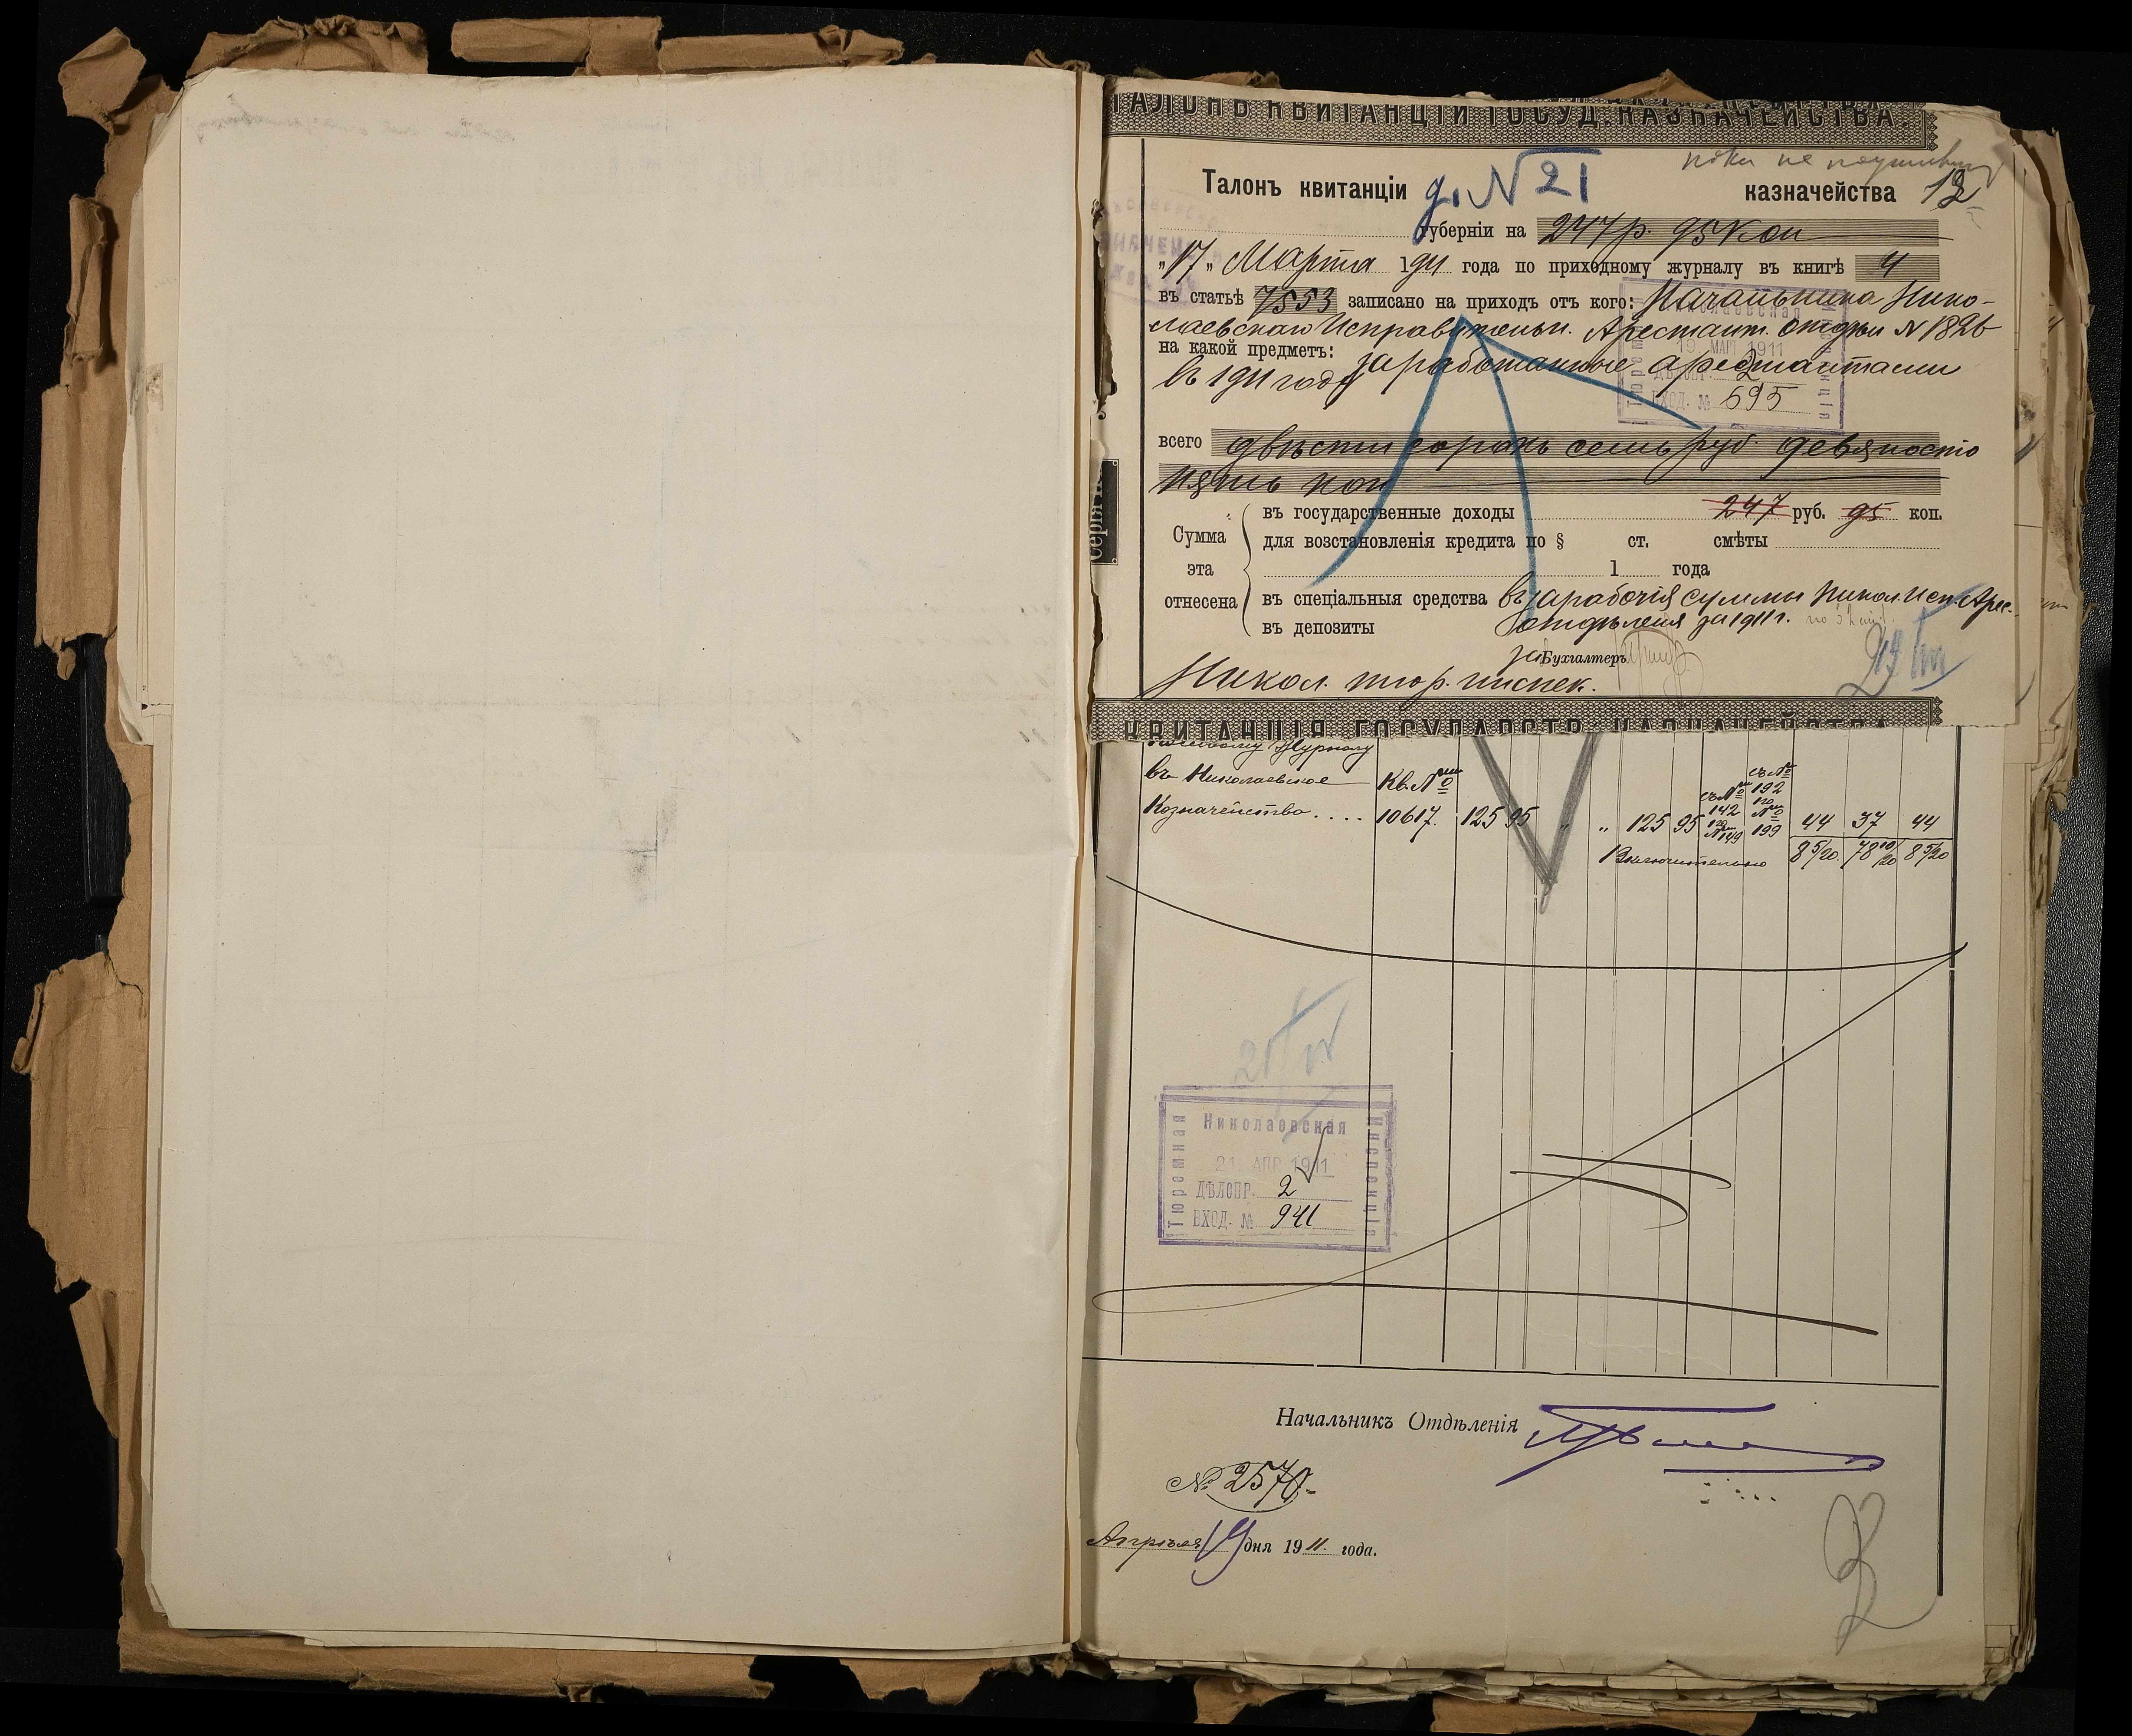 ТАЛОНЪ КВИТАНЦІИ ГОСУД. КАЗНАЧЕЙСТВА.
пока не
Талонъ квитанціи д. № 21 казначейства 12
губерніи на 247 р. 95 коп
„17„ Марта 1911 года по приходному журналу въ книгѣ 4
въ статьѣ 7553 записано на приходъ отъ кого: Начальника Нико-
лаевскаго Исправительн. Арестант. отдѣл N 1826
на какой предметъ: заработанные арестантами
въ 1911 году
Николаевская
Тюремная
Инспекція
19 МАР 1911
ДѢЛОПР. 2
ВХОД. № 695
всего двѣсти сорокъ семь руб. девяносто
пять коп
Серія
Сумма эта отнесена
въ государственные доходы 247 руб. 95 коп.
для возстановленія кредита по § ст. смѣты
1 года
въ спеціальныя средства въ заработія суммы Никол. Исп. Арес.
въ депозиты отдѣленія за 1911 г.
за Бухгалтеръ
Никол. тюр. инспек.
КВИТАНЦІЯ ГОСУДАРСТВ. КАЗНАЧЕЙСТВА
журналу
въ Николаевское Кв. №
Козначейство.... 10617. 125 95 „ „ 125 95 съ № 142 по № 149 съ № 192 по № 199 44 37 44
Включительно 8 5/20 78 10/20 8 5/20
Николаевская
Тюремная
Инспекція
21 АПР 1911
ДѢЛОПР. 2
ВХОД. № 941
Начальникъ Отдѣленія
№ 2570.
Апрѣля 19 дня 1911. года.